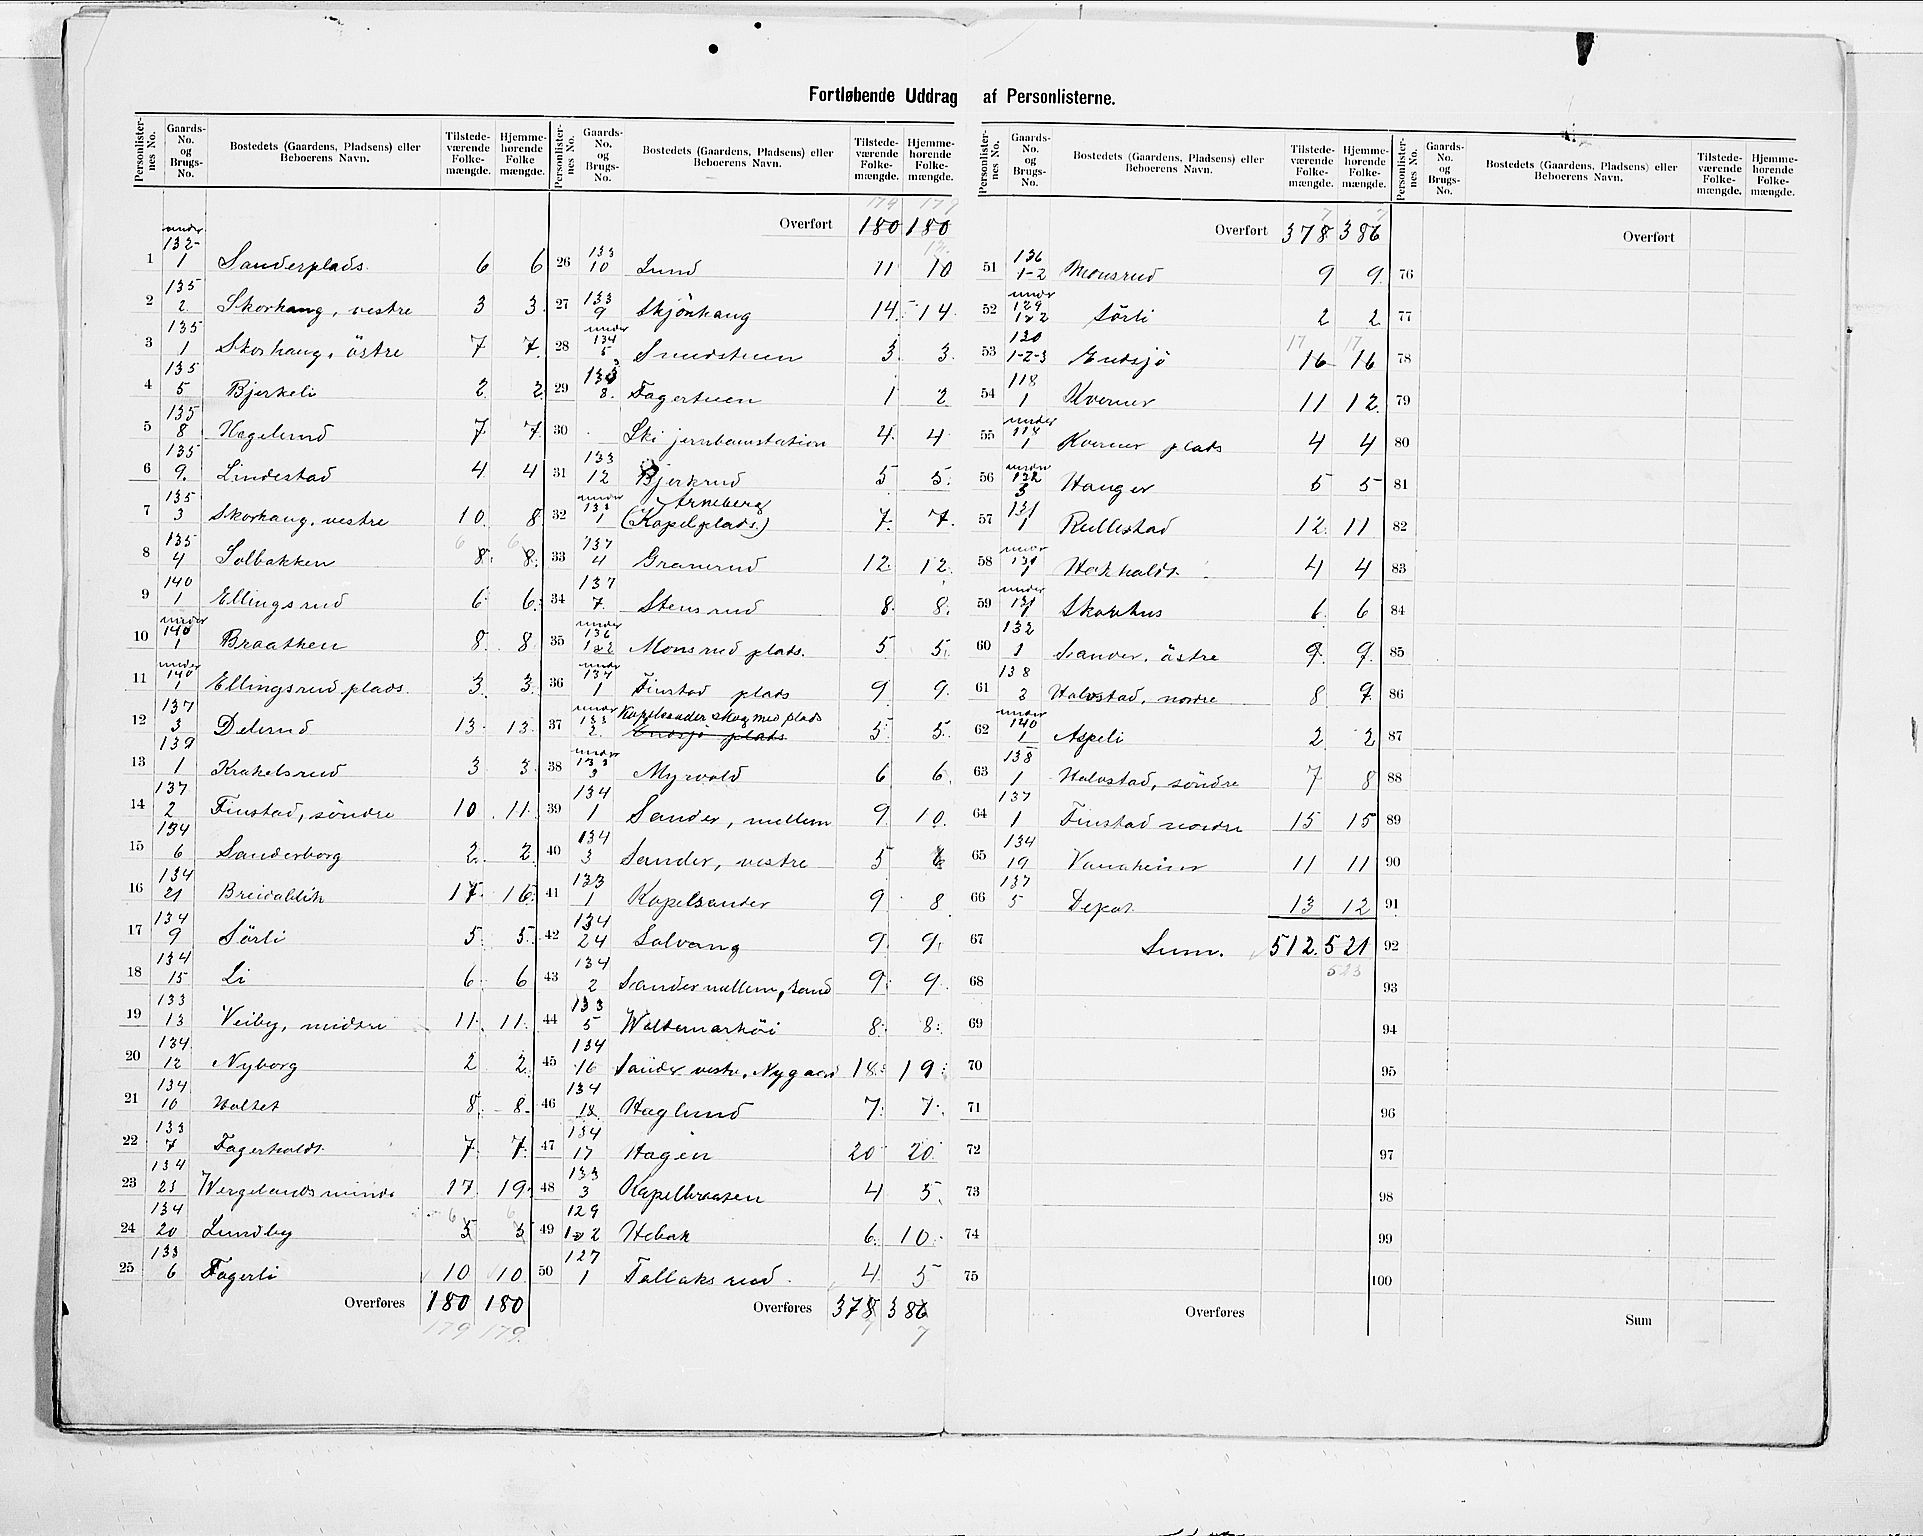 Fortløbende Uddrag af Personlisterne.
Personlisternes No. Gaards-No. og Brugs-No. Bostedets (Gaardens, Pladsens) eller Beboerens Navn. Tilstedeværende Folkemængde. Hjemmehørende Folkemængde.
1 under 132 1 Sanderplads 6 6
2 135 2 Skorhaug, vestre 3 3
3 135 1 Skorhaug, östre 7 7
4 135 5 Bjerkeli 2 2
5 135 8 Hegelund 7 7
6 135 9 Lindestad 4 4
7 135 3 Skorhaug, vestre 10 8
8 135 4 Solbakken 8 8
9 140 1 Ellingsrud 6 6
10 under 140 1 Braathen 8 8
11 under 140 1 Ellingsrud plads. 3 3
12 137 3 Delerud 13 13
13 139 1 Krakelsrud 3 3
14 137 2 Finstad, söndre 10 11
15 134 6 Sanderborg 2 2
16 134 21 Breidablik 17 16
17 134 9 Sörli 5 5
18 134 15 Li 6 6
19 133 13 Veiby, midtre 11 11
20 134 12 Nyborg 2 2
21 134 10 Holtet 8 8
22 133 7 Fagerholdt 7 7
23 134 23 Wergelandsminde 17 19
24 134 20 Lundby 5 5
25 133 6 Fagerli 10 10
Overføres 180 180
179 179
Overført 180 180
26 133 10 Lund 11 10
27 133 9 Skjönhaug 14 14
28 under 134 5 Smedstuen 3 3
29 133 8 Fagertuen 1 2
30 Ski jernbanestation 4 4
31 133 12 Bjerkrud 5 5
32 under 133 1 Arneberg (Kapelplads.) 7 7
33 137 4 Granerud 12 12
34 137 7 Stensrud 8 8
35 under 136 1 o 2 Monsrud plads. 5 5
36 under 137 1 Finstad plads 9 9
37 under 133 2 Kapelsander skog med plads 5 5
Endsjö plads
38 under 133 3 Myrvold 6 6
39 134 1 Sander, mellem 9 10
40 134 3 Sander, vestre 5
41 133 1 Kapelsander 9 8
42 134 24 Solvang 9 9
43 134 2 Sander mellem, sand 9 9
44 133 5 Woldemarhöi 8 8
45 134 16 Sander vestre, Nygaard 18 19
46 134 18 Haglund 7 7
47 134 17 Hagen 20 20
48 133 3 Kapelbraaten 4 5
49 129 1 o 2 Hebæk 6 10
50 127 1 Tallaksrud 4 5
Overføres 378 386
7 7
Overført 378 386
51 136 1-2 Monsrud 9 9
52 under 129 1 o 2 Sörli 2 2
53 130 1-2-3 Endsjö 16 16
54 118 1 Kverner 11 12
55 under 118 1 Kverner plads 4 4
56 under 132 3 Hauger 5 5
57 131 1 Rullestad 12 11
58 under 131 1 Hokholdt 4 4
59 under 131 1 Skorhus 6 6
60 132 1 Sander, östre 9 9
61 138 2 Halvstad, nordre 8 9
62 under 140 1 Aspeli 2 2
63 138 1 Halvstad, söndre 7 8
64 137 1 Finstad nordre 15 15
65 134 19 Vanaheim 11 11
66 137 5 Depot 13 12
67 Sum. 512 521
523
68
69
70
71
72
73
74
75
Overføres
Overført
76
77
78
79
80
81
82
83
84
85
86
87
88
89
90
91
92
93
94
95
96
97
98
99
100
Sum